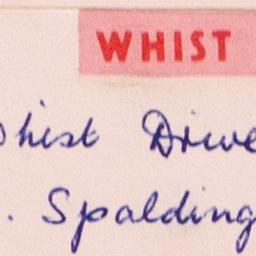 WHIST
Whist Drive
. Spalding